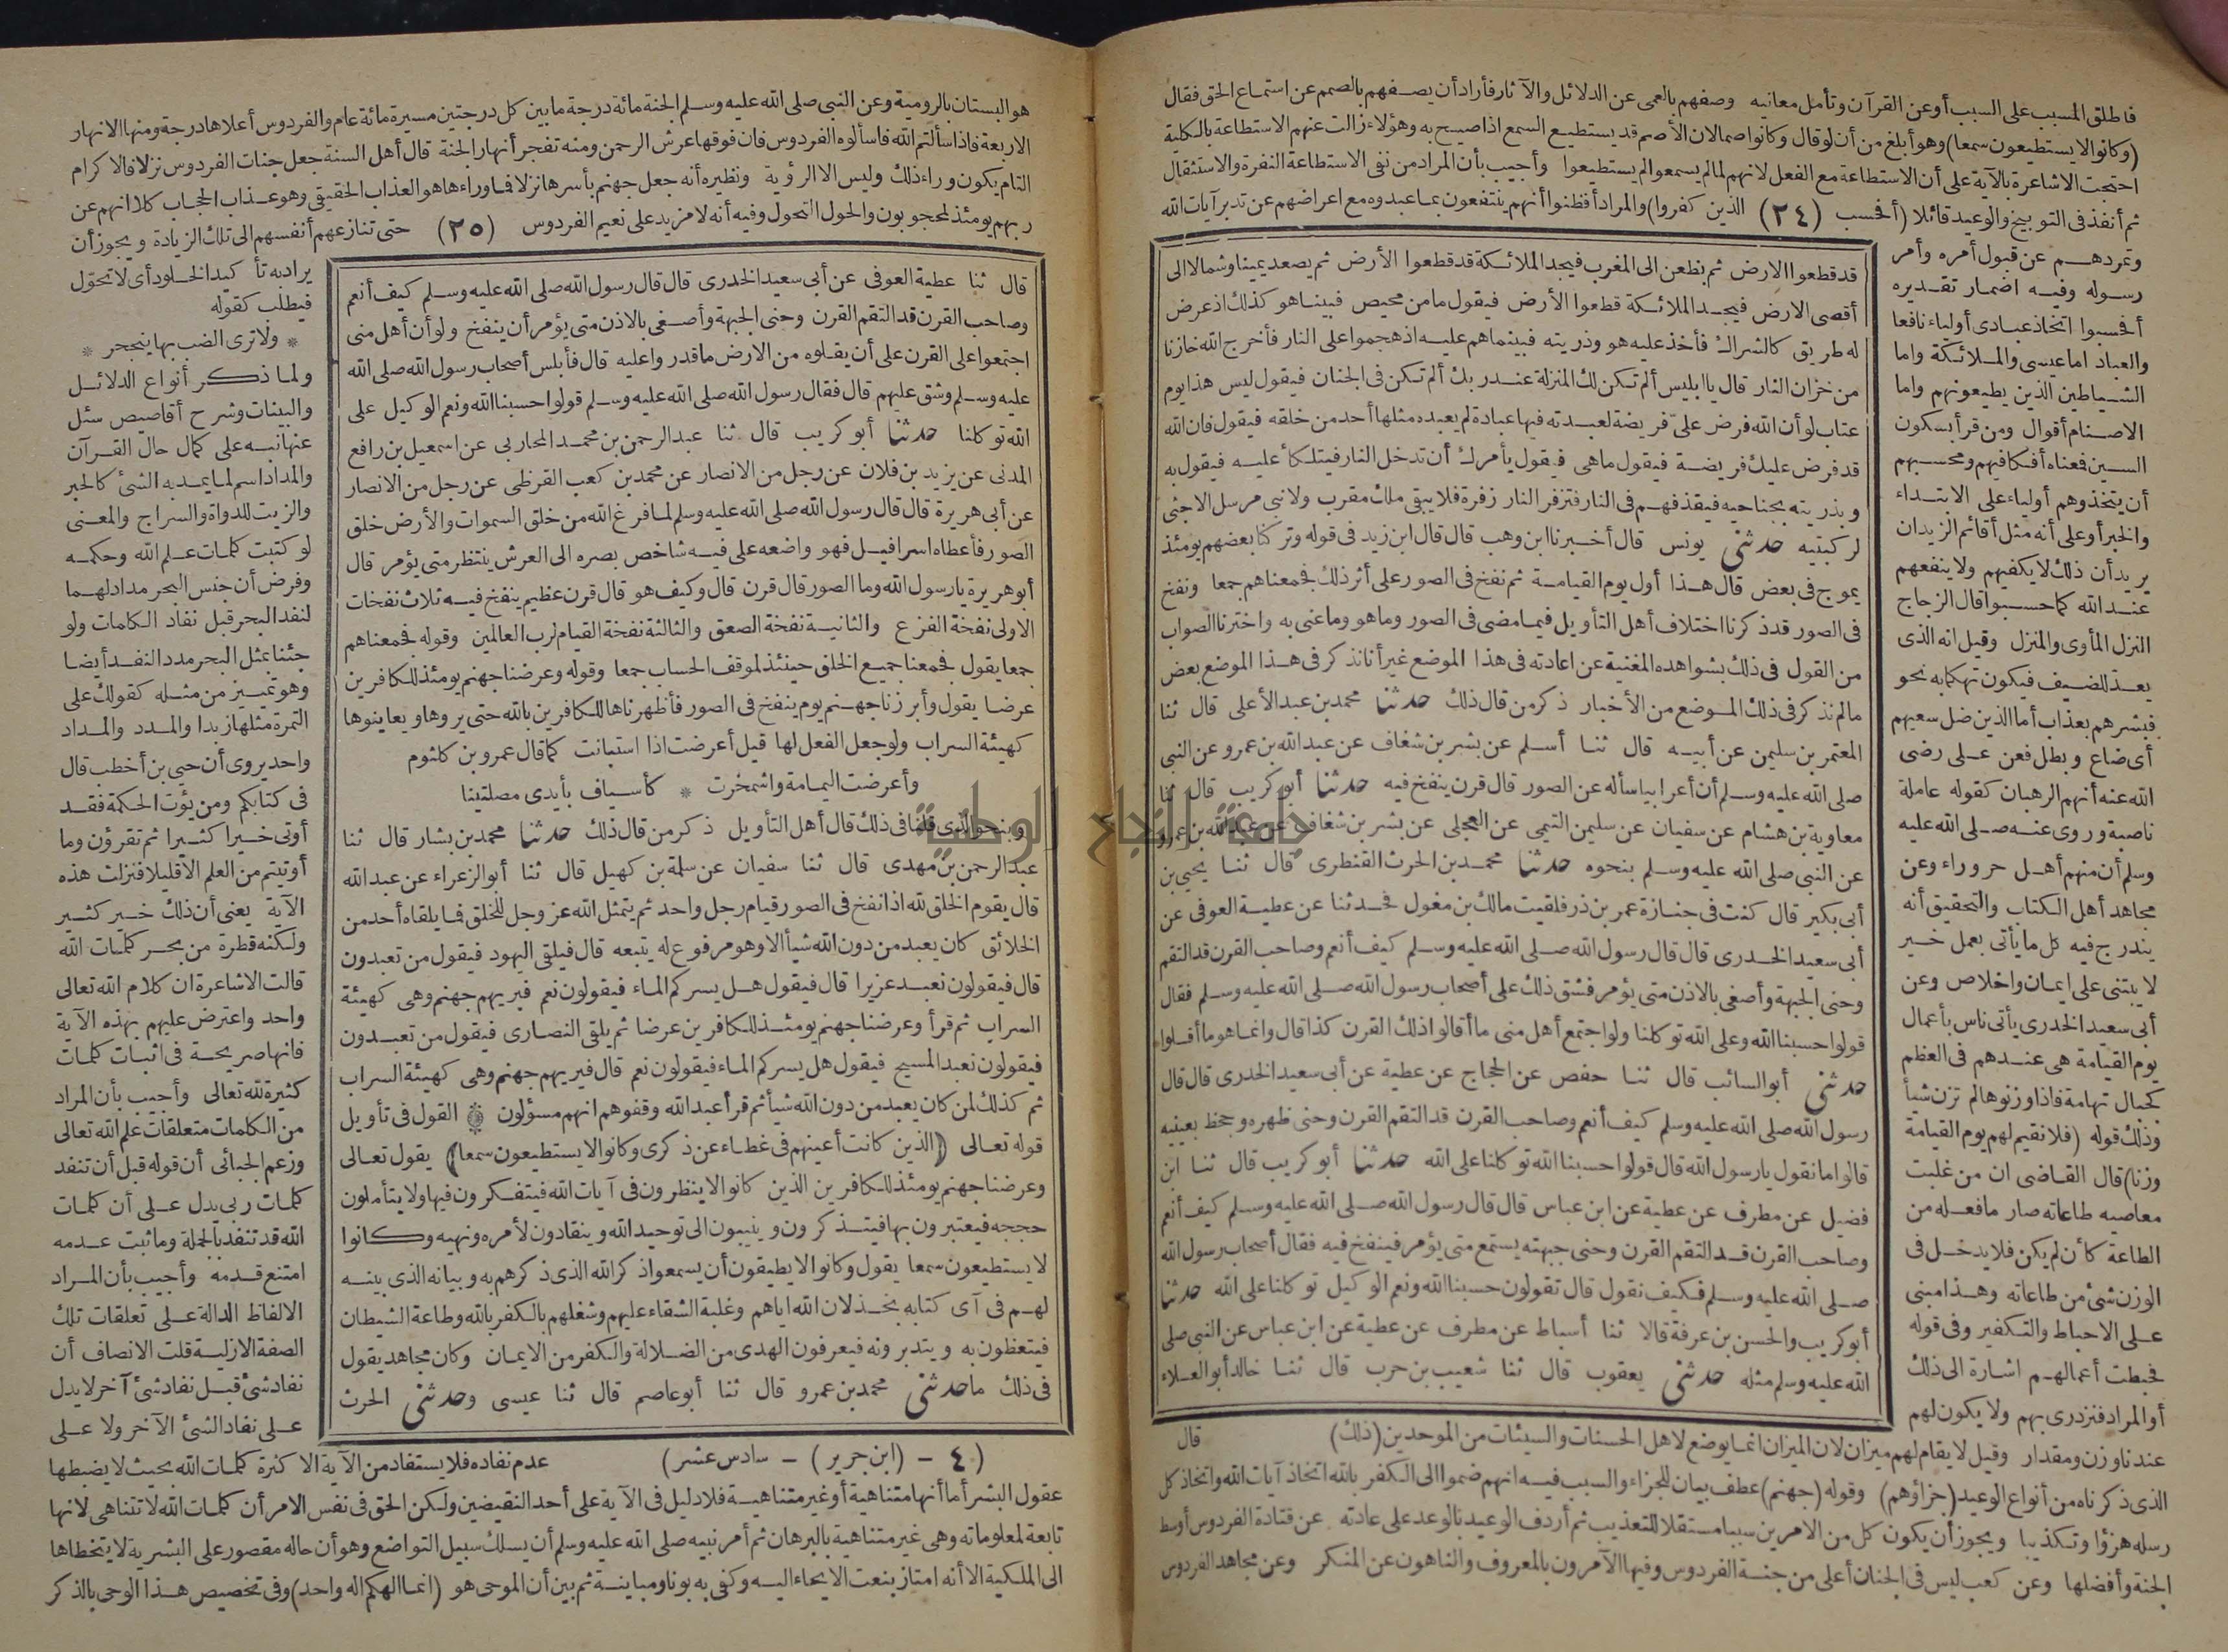 فاطلق المسبب على السبب أو عن القرآن وتأمل معانيه وصفهم بالعمى عن الدلائل والآثار فأراد أن يصفهم بالصمم عن استماع الحق فقال
(وكانوا لا يستطيعون سمعا) وهو أبلغ من أن لو قال وكانوا صما لان الأصم قد يستطيع السمع اذا صيح به وهؤلاء زالت عنهم الاستطاعة بالكلية
احتجت الاشاعرة بالآية على أن الاستطاعة مع الفعل لانهم لما لم يسمعوا لم يستطيعوا وأجيب بأن المراد من نفى الاستطاعة النفرة والاستثقال
ثم أنفذ فى التوبيخ والوعيد قائلا (أفحسب (٢٤) الذين كفروا) والمراد أفظنوا أنهم ينتفعون بما عبدوه مع اعراضهم عن تدبر آيات الله
وتمردهم عن قبول أمره وأمر
رسوله وفيه اضمار تقديره
أفحسبوا اتخاذ عبادى أولياء نافعا
والعباد اما عيسى والملائكة واما
الشياطين الذين يطيعونهم واما
الاصنام أقوال ومن قرأ بسكون
السين فعناه أفكافيهم ومحسبهم
أن يتخذوهم أولياء على الابتداء
والخبر أو على أنه مثل أقائم الزيدان
يريد أن ذلك لا يكفيهم ولا ينفعهم
عند الله كما حسبوا قال الزجاج
النزل المأوى والمنزل وقيل انه الذى
يعد للضيف فيكون تهكما به نحو
فبشرهم بعذاب أما الذين ضل سعيهم
أى ضاع وبطل فعن على رضى
الله عنه أنهم الرهبان كقوله عاملة
ناصبة وروى عنه صلى الله عليه
وسلم أن منهم أهل حروراء وعن
مجاهد أهل الكتاب والتحقيق أنه
يندرج فيه كل ما يأتى بعمل خير
لا يبتنى على ايمان واخلاص وعن
أبى سعيد الخدرى يأتى ناس بأعمال
يوم القيامة هى عندهم فى العظم
كجبال تهامة فاذا وزنوها لم تزن شيأ
وذلك قوله (فلا نقيم لهم يوم القيامة
وزنا) قال القاضى ان من غلبت
معاصيه طاعاته صار ما فعله من
الطاعة كأن لم يكن فلا يدخل فى
الوزن شئ من طاعاته وهذا مبنى
على الاحباط والتكفير وفى قوله
فحبطت أعمالهم اشارة الى ذلك
أو المراد فنزدرى بهم ولا يكون لهم
قد قطعوا الارض ثم يظعن الى المغرب فيجد الملائكة قد قطعوا الأرض ثم يصعد يمينا وشمالا الى
أقصى الارض فيجد الملائكة قطعوا الأرض فيقول ما من محيص فبينا هو كذلك اذ عرض
له طريق كالشراك فأخذ عليه هو وذريته فبينما هم عليه اذ هجموا على النار فأخرج الله خازنا
من خزان النار قال يا ابليس ألم تكن لك المنزلة عند ربك ألم تكن فى الجنان فيقول ليس هذا يوم
عتاب لو أن الله فرض علىّ فريضة لعبدته فيها عبادة لم يعبده مثلها أحد من خلقه فيقول فان الله
قد فرض عليك فريضة فيقول ما هى فيقول يأمرك أن تدخل النار فيتلكأ عليه فيقول به
وبذريته بجناحيه فيقذفهم فى النار فتزفر النار زفرة فلا يبقى ملك مقرب ولا نبى مرسل الا جثى
لركبتيه حدثنى يونس قال أخبرنا ابن وهب قال قال ابن زيد فى قوله وتركنا بعضهم يومئذ
يموج فى بعض قال هذا أول يوم القيامة ثم نفخ فى الصور على أثر ذلك فجمعناهم جمعا ونفخ
فى الصور قد ذكرنا اختلاف أهل التأويل فيما مضى فى الصور وما هو وما عنى به واخترنا الصواب
من القول فى ذلك بشواهده المغنية عن اعادته فى هذا الموضع غير أنا نذكر فى هذا الموضع بعض
ما لم نذكر فى ذلك الموضع من الأخبار ذكر من قال ذلك حدثنا محمد بن عبد الأعلى قال ثنا
المعتمر بن سليمن عن أبيه قال ثنا أسلم عن بشر بن شغاف عن عبد الله بن عمرو عن النبى
صلى الله عليه وسلم أن أعرابيا سأله عن الصور قال قرن ينفخ فيه حدثنا أبو كريب قال ثنا
معاوية بن هشام عن سفيان عن سليمن التيمى عن العجلى عن بشر بن شغاف عن عبد الله بن عمرو
عن النبى صلى الله عليه وسلم بنحوه حدثنا محمد بن الحرث القنطرى قال ثنا يحيى بن
أبى بكير قال كنت فى جنازة عمر بن ذر فلقيت مالك بن مغول فحدثنا عن عطية العوفى عن
أبى سعيد الخدرى قال قال رسول الله صلى الله عليه وسلم كيف أنعم وصاحب القرن قد التقم
وحنى الجبهة وأصغى بالاذن متى يؤمر فشق ذلك على أصحاب رسول الله صلى الله عليه وسلم فقال
قولوا حسبنا الله وعلى الله توكلنا ولو اجتمع أهل منى ما أقالوا ذلك القرن كذا قال وانما هو ما أقلوا
حدثنى أبو السائب قال ثنا حفص عن الحجاج عن عطية عن أبى سعيد الخدرى قال قال
رسول الله صلى الله عليه وسلم كيف أنعم وصاحب القرن قد التقم القرن وحنى ظهره وجحظ بعينيه
قالوا ما نقول يا رسول الله قال قولوا حسبنا الله توكلنا على الله حدثنا أبو كريب قال ثنا ابن
فضيل عن مطرف عن عطية عن ابن عباس قال قال رسول الله صلى الله عليه وسلم كيف أنعم
وصاحب القرن قد التقم القرن وحنى جبهته يستمع متى يؤمر فينفخ فيه فقال أصحاب رسول الله
صلى الله عليه وسلم فكيف نقول قال تقولون حسبنا الله ونعم الوكيل توكلنا على الله حدثنا
أبو كريب والحسن بن عرفة قالا ثنا أسباط عن مطرف عن عطية عن ابن عباس عن النبى صلى
الله عليه وسلم مثله حدثنى يعقوب قال ثنا شعيب بن حرب قال ثنا خالد أبو العلاء
قال
عندنا وزن ومقدار وقيل لا يقام لهم ميزان لان الميزان انما يوضع لاهل الحسنات والسيئات من الموحدين (ذلك)
الذى ذكرناه من أنواع الوعيد (جزاؤهم) وقوله (جهنم) عطف بيان للجزاء والسبب فيه انهم ضموا الى الكفر بالله اتخاذ آيات الله واتخاذ كل
رسله هزؤا وتكذيبا ويجوز أن يكون كل من الامرين سببا مستقلا للتعذيب ثم أردف الوعيد بالوعد على عادته عن قتادة الفردوس أوسط
الجنة وأفضلها وعن كعب ليس فى الجنان أعلى من جنة الفردوس وفيها الآمرون بالمعروف والناهون عن المنكر وعن مجاهد الفردوس
هو البستان بالرومية وعن النبى صلى الله عليه وسلم الجنة مائة درجة ما بين كل درجتين مسيرة مائة عام والفردوس أعلاها درجة ومنها الانهار
الاربعة فاذا سألتم الله فاسألوه الفردوس فان فوقها عرش الرحمن ومنه تفجر أنهار الجنة قال أهل السنة جعل جنات الفردوس نزلا فالاكرام
التام يكون وراء ذلك وليس الا الرؤية ونظيره أنه جعل جهنم بأسرها نزلا فما وراءها هو العذاب الحقيقى وهو عذاب الحجاب كلا انهم عن
ربهم يومئذ لمحجوبون والحول التحول وفيه أنه لا مزيد على نعيم الفردوس (٢٥) حتى تنازعهم أنفسهم الى تلك الزيادة ويجوز أن
قال ثنا عطية العوفى عن أبى سعيد الخدرى قال قال رسول الله صلى الله عليه وسلم كيف أنعم
وصاحب القرن قد التقم القرن وحنى الجبهة وأصغى بالاذن متى يؤمر أن ينفخ ولو أن أهل منى
اجتمعوا على القرن على أن يقلوه من الارض ما قدروا عليه قال فأبلس أصحاب رسول الله صلى الله
عليه وسلم وشق عليهم قال فقال رسول الله صلى الله عليه وسلم قولوا حسبنا الله ونعم الوكيل على
الله توكلنا حدثنا أبو كريب قال ثنا عبد الرحمن بن محمد المحاربى عن اسمعيل بن رافع
المدنى عن يزيد بن فلان عن رجل من الانصار عن محمد بن كعب القرظى عن رجل من الانصار
عن أبى هريرة قال قال رسول الله صلى الله عليه وسلم لما فرغ الله من خلق السموات والأرض خلق
الصور فأعطاه اسرافيل فهو واضعه على فيه شاخص بصره الى العرش ينتظر متى يؤمر قال
أبو هريرة يا رسول الله وما الصور قال قرن قال وكيف هو قال قرن عظيم ينفخ فيه ثلاث نفخات
الاولى نفخة الفزع والثانية نفخة الصعق والثالثة نفخة القيام لرب العالمين وقوله فجمعناهم
جمعا يقول فجمعنا جميع الخلق حينئذ لموقف الحساب جمعا وقوله وعرضنا جهنم يومئذ للكافرين
عرضا يقول وأبرزنا جهنم يوم ينفخ فى الصور فأظهرناها للكافرين بالله حتى يروها ويعاينوها
كهيئة السراب ولو جعل الفعل لها قيل أعرضت اذا استبانت كما قال عمرو بن كلثوم
وأعرضت اليمامة واشمخرت * كأسياف بأيدى مصلتينا
وبنحو الذى قلنا فى ذلك قال أهل التأويل ذكر من قال ذلك حدثنا محمد بن بشار قال ثنا
عبد الرحمن بن مهدى قال ثنا سفيان عن سلمة بن كهيل قال ثنا أبو الزعراء عن عبد الله
قال يقوم الخلق لله اذا نفخ فى الصور قيام رجل واحد ثم يتمثل الله عز وجل للخلق فما يلقاه أحد من
الخلائق كان يعبد من دون الله شيأ الا وهو مرفوع له يتبعه قال فيلقى اليهود فيقول من تعبدون
قال فيقولون نعبد عزيرا قال فيقول هل يسركم الماء فيقولون نعم فيريهم جهنم وهى كهيئة
السراب ثم قرأ وعرضنا جهنم يومئذ للكافرين عرضا ثم يلقى النصارى فيقول من تعبدون
فيقولون نعبد المسيح فيقول هل يسركم الماء فيقولون نعم قال فيريهم جهنم وهى كهيئة السراب
ثم كذلك لمن كان يعبد من دون الله شيأ ثم قرأ عبد الله وقفوهم انهم مسؤلون القول فى تأويل
قوله تعالى (الذين كانت أعينهم فى غطاء عن ذكرى وكانوا لا يستطيعون سمعا) يقول تعالى
وعرضنا جهنم يومئذ للكافرين الذين كانوا لا ينظرون فى آيات الله فيتفكرون فيها ولا يتأملون
حججه فيعتبرون بها فيتذكرون وينيبون الى توحيد الله وينقادون لأمره ونهيه وكانوا
لا يستطيعون سمعا يقول وكانوا لا يطيقون أن يسمعوا ذكر الله الذى ذكرهم به وبيانه الذى بينه
لهم فى آى كتابه بخذلان الله اياهم وغلبة الشقاء عليهم وشغلهم بالكفر بالله وطاعة الشيطان
فيتعظون به ويتدبرونه فيعرفون الهدى من الضلالة والكفر من الايمان وكان مجاهد يقول
فى ذلك ما حدثنى محمد بن عمرو قال ثنا أبو عاصم قال ثنا عيسى وحدثنى الحرث
يراد به تأكيد الخلود أى لا تحوّل
فيطلب كقوله
* ولا ترى الضب بها ينجحر *
ولما ذكر أنواع الدلائل
والبينات وشرح أقاصيص سئل
عنها نبه على كمال حال القرآن
والمداد اسم لما يمد به الشئ كالحبر
والزيت للدواة والسراج والمعنى
لو كتبت كلمات علم الله وحكمه
وفرض أن جنس البحر مداد لهما
لنفد البحر قبل نفاد الكلمات ولو
جئنا بمثل البحر مددا لنفد أيضا
وهو تمييز من مثله كقولك على
التمرة مثلها زبدا والمدد والمداد
واحد يروى أن حيى بن أخطب قال
فى كتابكم ومن يؤت الحكمة فقد
أوتى خيرا كثيرا ثم تقرؤن وما
أوتيتم من العلم الا قليلا فنزلت هذه
الآية يعنى أن ذلك خير كثير
ولكنه قطرة من بحر كلمات الله
قالت الاشاعرة ان كلام الله تعالى
واحد واعترض عليهم بهذه الآية
فانها صريحة فى اثبات كلمات
كثيرة لله تعالى وأجيب بأن المراد
من الكلمات متعلقات علم الله تعالى
وزعم الجبائى أن قوله قبل أن تنفد
كلمات ربى يدل على أن كلمات
الله قد تنفد بالجملة وما ثبت عدمه
امتنع قدمه وأجيب بأن المراد
الالفاظ الدالة على تعلقات تلك
الصفة الازلية قلت الانصاف أن
نفاد شئ قبل نفاد شئ آخر لا يدل
على نفاد الشئ الآخر ولا على
(٤ - (ابن جرير) - سادس عشر) عدم نفاده فلا يستفاد من الآية الا كثرة كلمات الله بحيث لا يضبطها
عقول البشر أما أنها متناهية أو غير متناهية فلا دليل فى الآية على أحد النقيضين ولكن الحق فى نفس الامر أن كلمات الله لا تتناهى لانها
تابعة لمعلوماته وهى غير متناهية بالبرهان ثم أمر نبيه صلى الله عليه وسلم أن يسلك سبيل التواضع وهو أن حاله مقصور على البشرية لا يتخطاها
الى الملكية الا أنه امتاز بنعت الايحاء اليه وكفى به بونا ومباينة ثم بين أن الموحى هو (انما الهكم اله واحد) وفى تخصيص هذا الوحى بالذكر
جامعة النجاح الوطنية